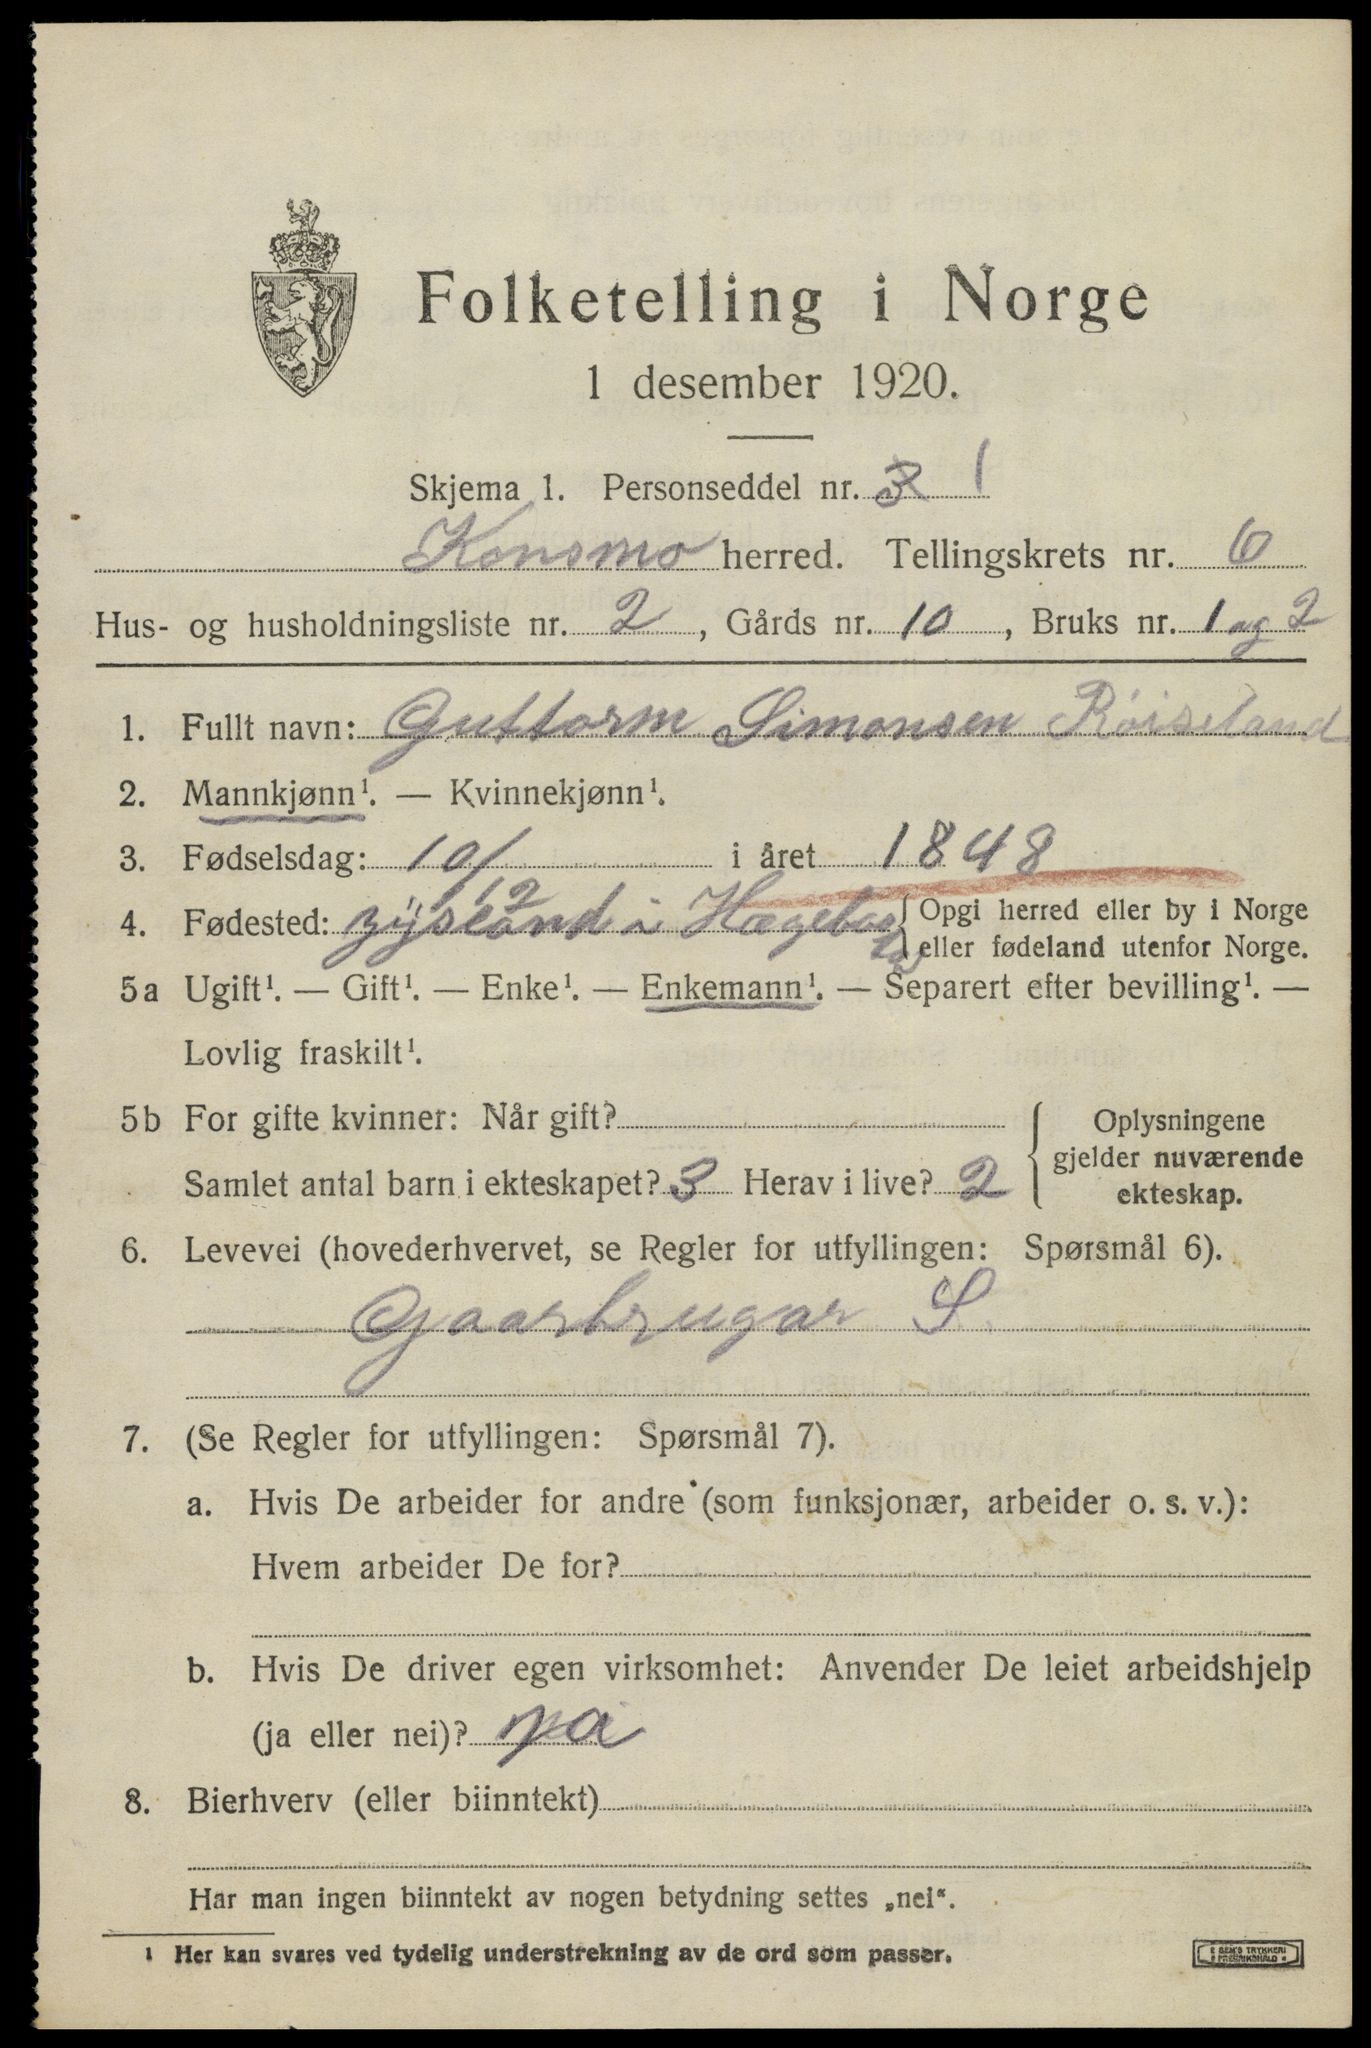 Folketelling i Norge
1 desember 1920.
Skjema 1. Personseddel nr. 3 1
Konsmo herred. Tellingskrets nr. 6
Hus- og husholdningsliste nr. 2, Gårds nr. 10, Bruks nr. 1 og 2
1. Fullt navn: Guttorm Simonsen Röiseland
2. Mannkjønn¹. — Kvinnekjønn¹.
3. Fødselsdag: 10/12 i året 1848
4. Fødested: i Hægebostad { Opgi herred eller by i Norge
eller fødeland utenfor Norge.
5a Ugift¹. — Gift¹. — Enke¹. — Enkemann¹. — Separert efter bevilling¹. —
Lovlig fraskilt¹.
5b For gifte kvinner: Når gift?
Samlet antal barn i ekteskapet? 3 Herav i live? 2
{ Oplysningene
gjelder nuværende
ekteskap.
6. Levevei (hovederhvervet, se Regler for utfyllingen: Spørsmål 6).
Gaarbrugar S
7. (Se Regler for utfyllingen: Spørsmål 7).
a. Hvis De arbeider for andre (som funksjonær, arbeider o. s. v.):
Hvem arbeider De for?
b. Hvis De driver egen virksomhet: Anvender De leiet arbeidshjelp
(ja eller nei)?
8. Bierhverv (eller biinntekt)
Har man ingen biinntekt av nogen betydning settes „nei“.
1 Her kan svares ved tydelig understrekning av de ord som passer.